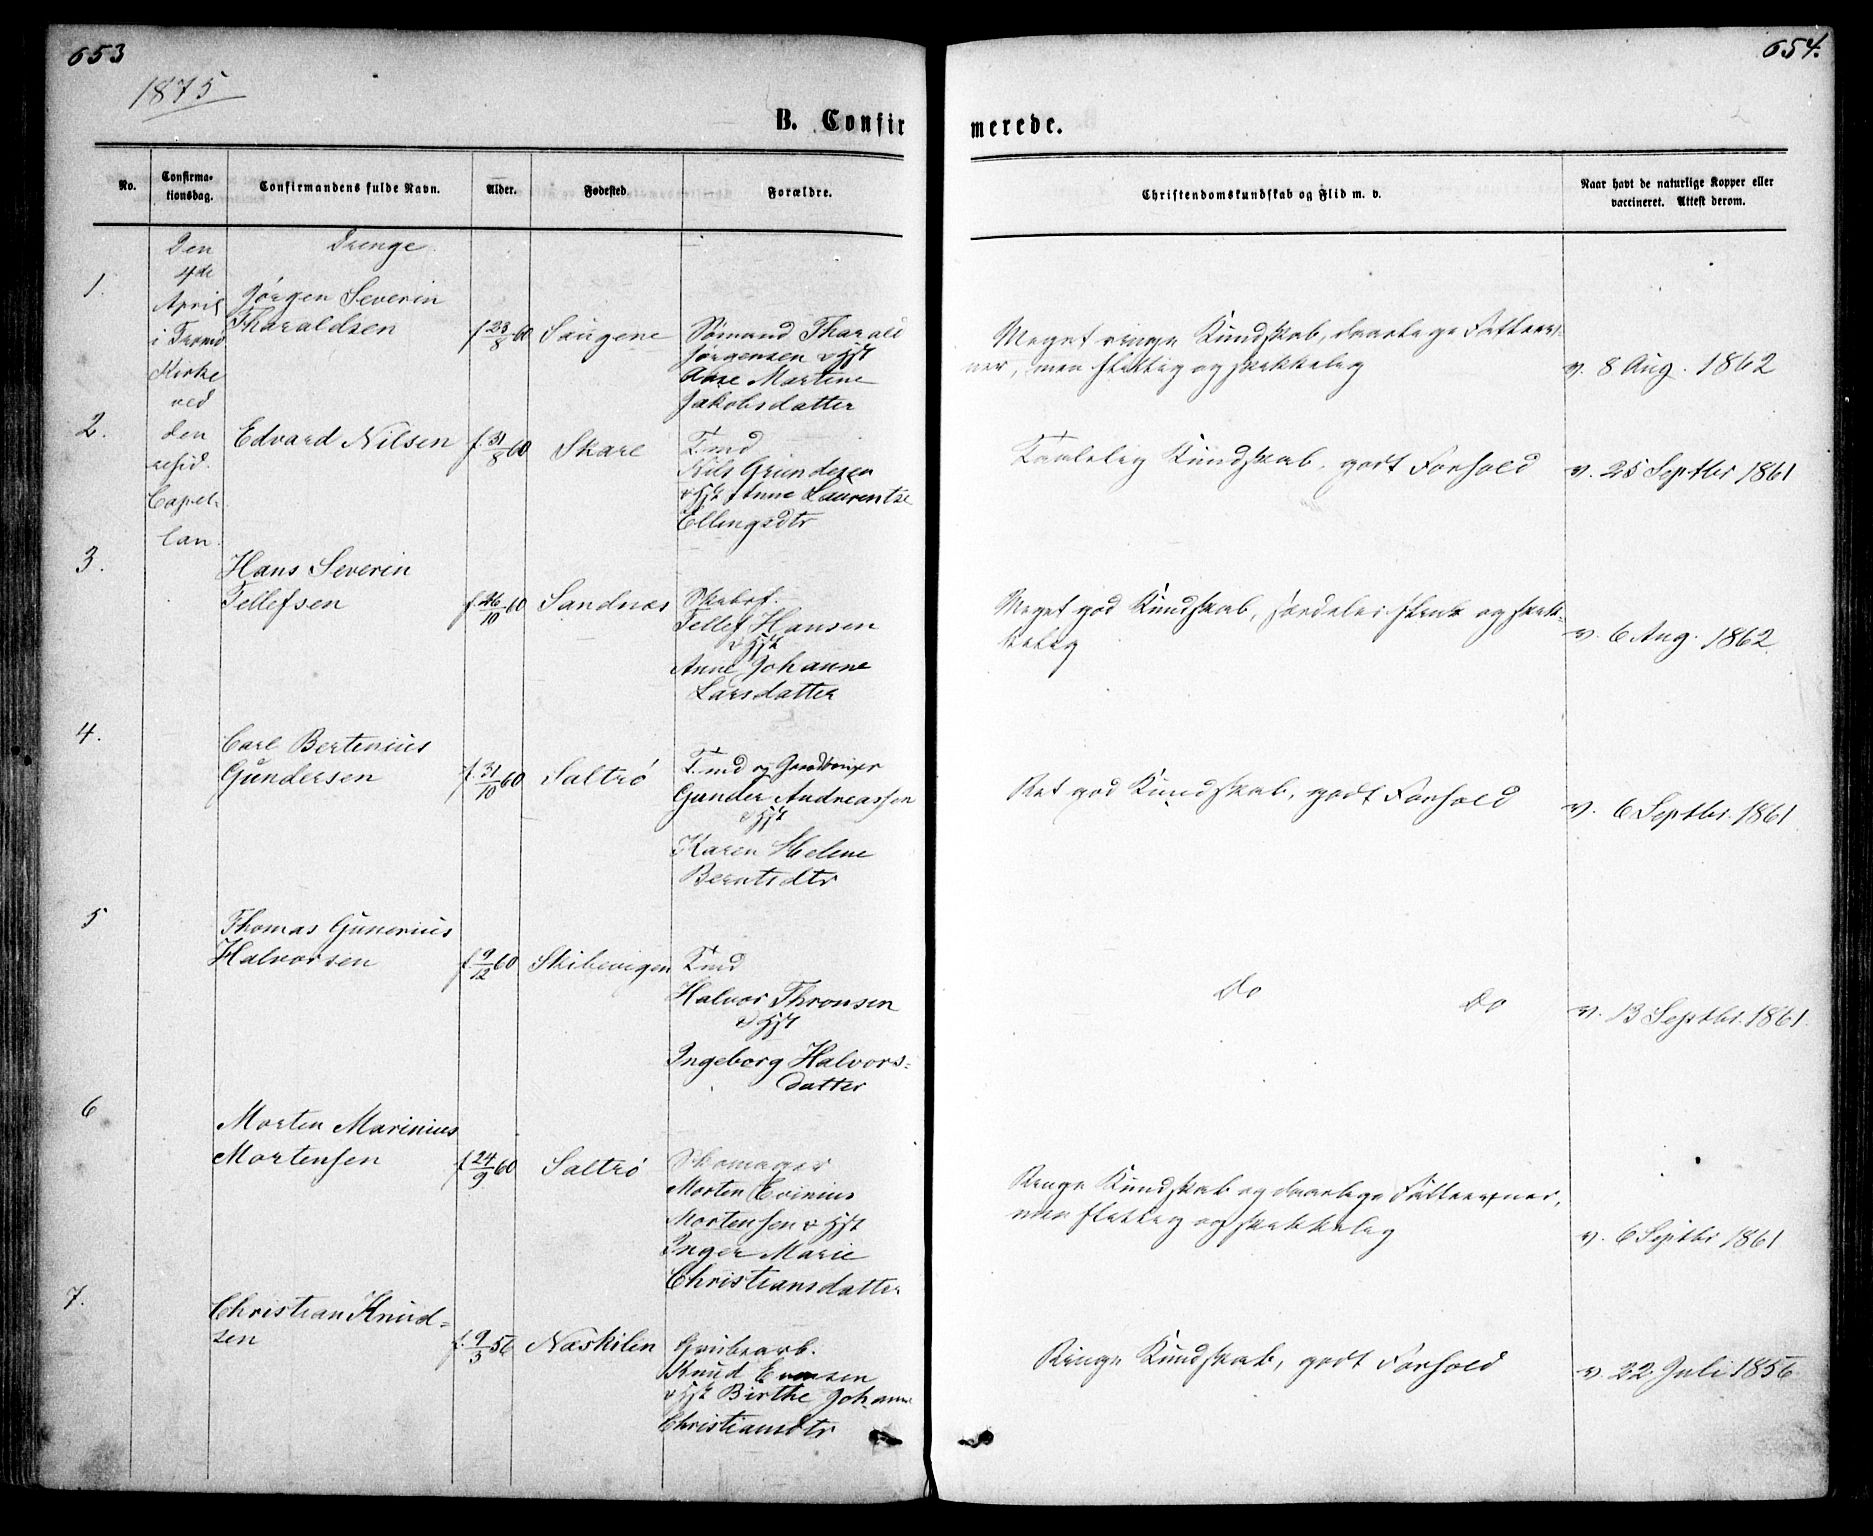 653
654.
1875
B. Confir
merede.
No.
Confirma-
tionsdag.
Confirmandens fulde Navn.
Alder.
Fødested
Forældre.
Christendomskundskab og Flid m. v.
Naar havt de naturlige Kopper eller
vaccineret. Attest derom.
Den
4de
April
i Tromø
Kirke
ved
den
resid.
Capel-
lan.
Drenge
1.
Jørgen Severin
Tharaldsen
f. 23/8 60
Saugene
Sømand Tharald
Jørgensen & Hst
Ane Martine
Jakobsdatter
Meget ringe Kundskab, daarlige Fatteev-
ner, men flittig og skikkelig
v. 8 Aug. 1862
2.
Edvard Nilsen
f. 31/8 60
Skare
Tmd
Nils Gundesen
& Hst Anne Laurentze
Ellingsdtr
Taalelig Kundskab, godt Forhold
v. 25 Septbr 1861
3.
Hans Severin
Tellefsen
f. 26/10 60
Sandnæs
Skibsf.
Tellef Hansen
& Hst
Anne Johanne
Larsdatter
Meget god Kundskab, særdeles flink og skik-
kelig
v. 6 Aug. 1862
4.
Carl Bertinius
Gundersen
f. 31/10 60
Saltrø
Tmd og
Gunder Andreassen
& Hst
Karen Helene
Berntsdtr
Ret god Kundskab, godt Forhold
v. 6 Septbr. 1861
5
Thomas Gunerius
Halvorsen
f. 9/12 60
Skibevigen
Tmd
Halvor Thronsen
& Hst
Ingeborg Halvors-
datter
do do
v. 13 Septbr. 1861.
6
Morten Marinius
Mortensen
f. 24/9 60
Saltrø
Skomager
Morten Evinius
Mortensen & Hst
Inger Marie
Christiansdatter
Ringe Kundskab og daarlige Fatteevner,
men flittig og skikkelig
v. 6 Septbr 1861
7.
Christian Knud-
sen
f. 9/3 56
Næskilen
Grubearb.
Knud Evensen
& Hst Birthe Johanne
Christiansdtr
Ringe Kundskab, godt Forhold
v. 22 Juli 1856